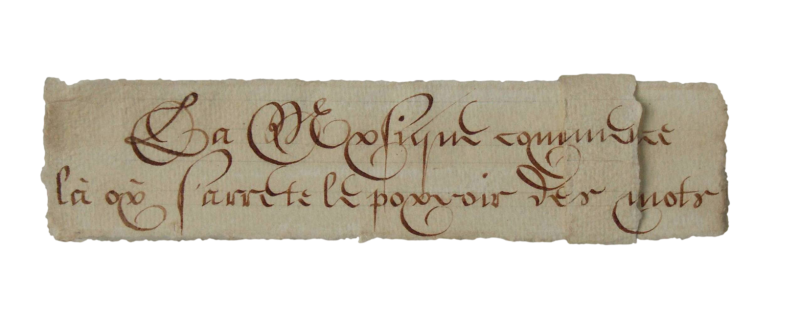 La Musique commence
là où s'arrete le pouvoir des mots